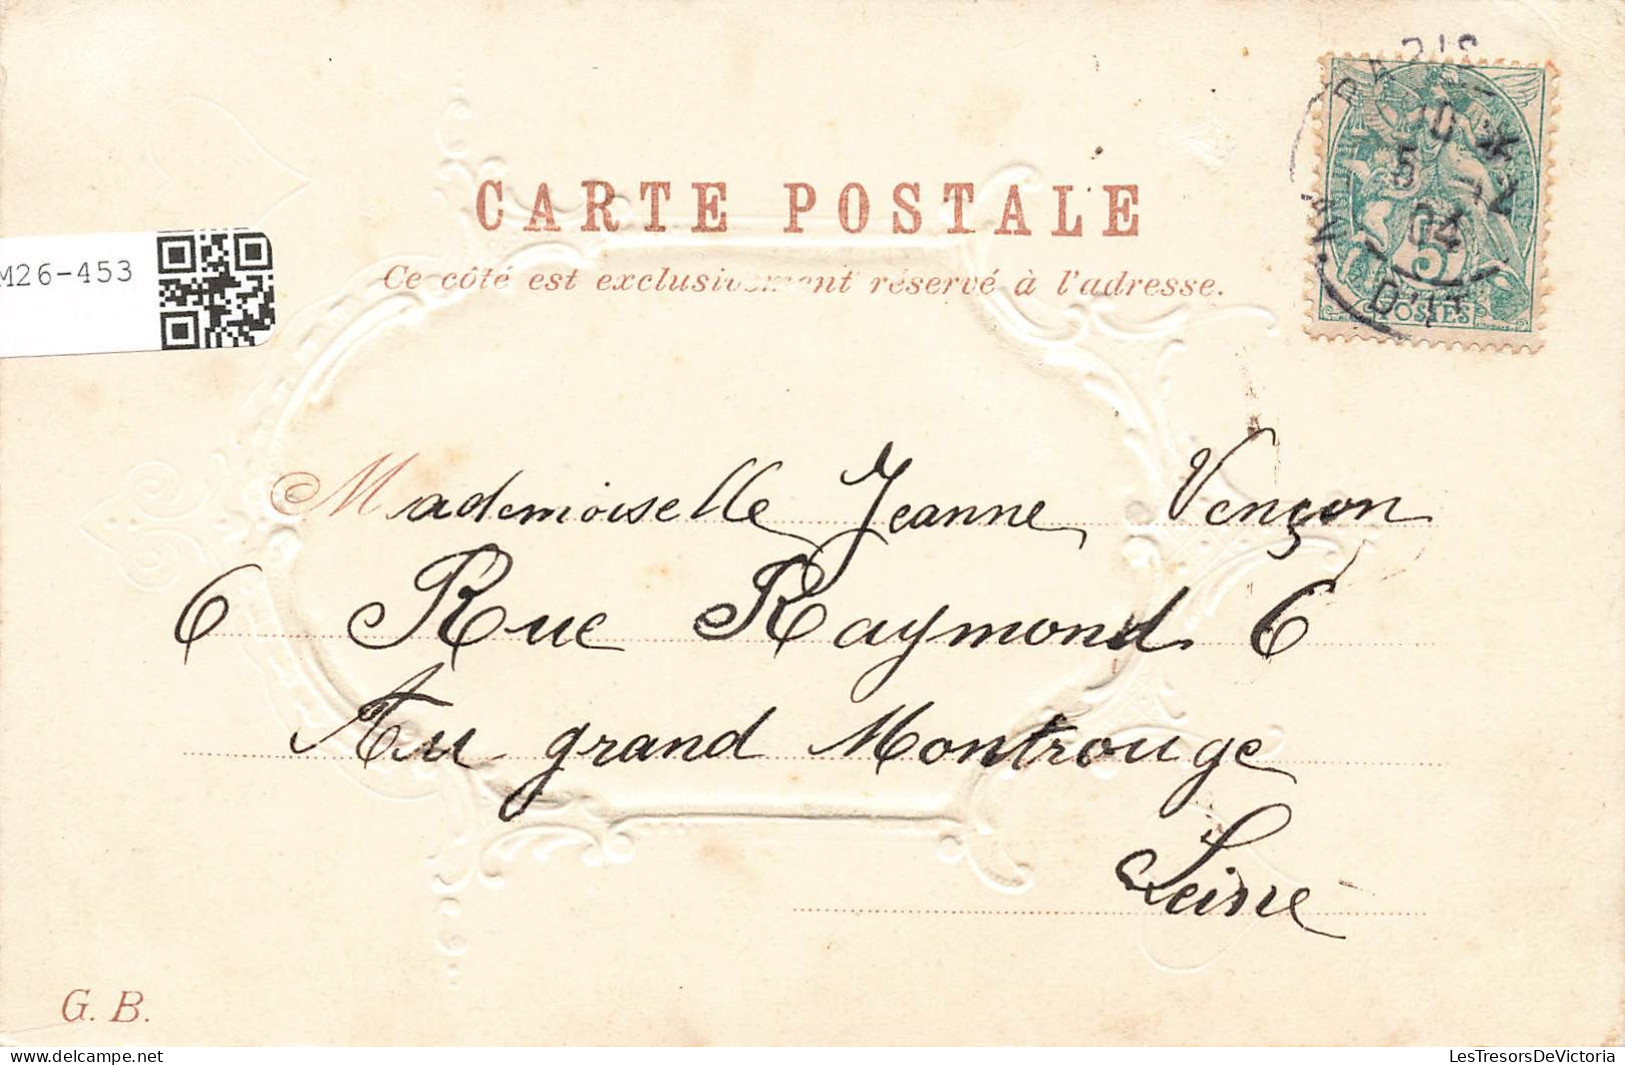 CARTE POSTALE
Ce côté est exclusivement réservé à l'adresse.
M26-453
PARIS
10
5 -2
04
5
POSTES
Mademoiselle Jeanne Vençon
6 Rue Raymond 6
Au grand Montrouge
Seine
G. B.
LesTresorsDeVictoria.com
www.delcampe.net